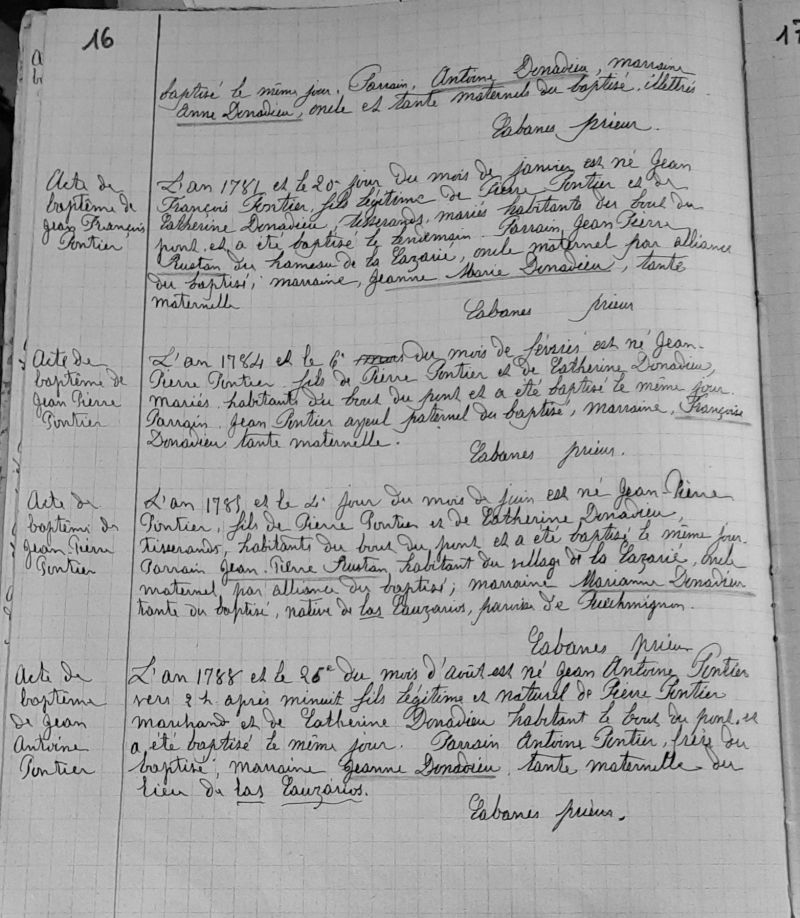 16
17
baptisé le même jour. Parrain, Antoine Donadieu, marraine
Anne Donadieu, oncle et tante maternels du baptisé, illettrés.
Cabanes prieur.
Acte de
baptême de
Jean François
Pontier
L'an 1781 et le 20e jour du mois de janvier est né Jean
François Pontier, fils légitime de Pierre Pontier et de
Catherine Donadieu, tisserands, mariés habitants du bout du
pont, et a été baptisé le lendemain. Parrain, Jean Pierre
Rustan du hameau de la Cazarié, oncle maternel par alliance
du baptisé; marraine, Jeanne Marie Donadieu, tante
maternelle
Cabanes prieur
Acte de
baptême de
Jean Pierre
Pontier
L'an 1784 et le 6e mois du mois de février est né Jean-
Pierre Pontier, fils de Pierre Pontier et de Catherine Donadieu,
mariés, habitants du bout du pont et a été baptisé le même jour.
Parrain, Jean Pontier ayeul paternel du baptisé, marraine, Françoise
Donadieu tante maternelle.
Cabanes prieur.
Acte de
baptême de
Jean Pierre
Pontier
L'an 1785 et le 4e jour du mois de juin est né Jean-Pierre
Pontier, fils de Pierre Pontier et de Catherine Donadieu,
tisserands, habitants du bout du pont et a été baptisé le même jour.
Parrain Jean-Pierre Rustan, habitant du village de la Cazarié, oncle
maternel par alliance du baptisé; marraine Marianne Donadieu
tante du baptisé, native de las Cauzarios, paroisse de Puechmignon.
Cabanes prieur
Acte de
baptême
de Jean
Antoine
Pontier
L'an 1788 et le 26e du mois d'août est né Jean Antoine Pontier
vers 2 h. après minuit fils légitime et naturel de Pierre Pontier
marchand et de Catherine Donadieu habitant le bout du pont. et
a été baptisé le même jour. Parrain Antoine Pontier, frère du
baptisé; marraine Jeanne Donadieu, tante maternelle du
lieu de las Cauzarios.
Cabanes prieur.